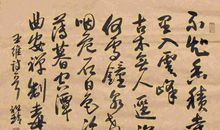 不知香積寺
里入雲峰
古木無人逕深
何處鐘泉
咽危石日色
薄暮空潭
曲安禪制毒
王維詩